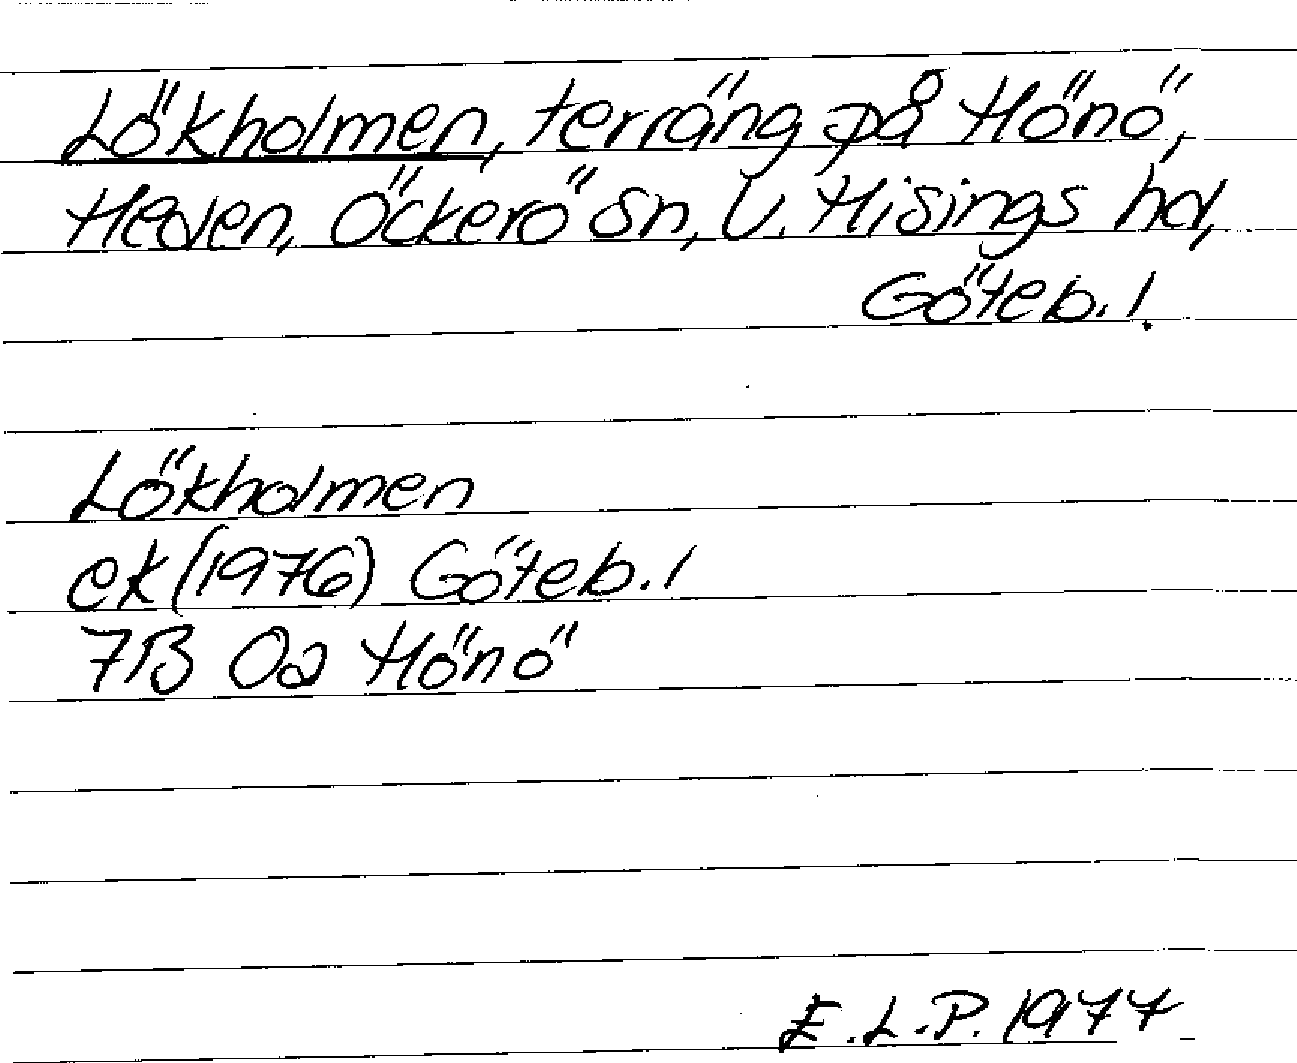 Lökholmen, terräng på Hönö,
Heden, Öckerö sn, V. Hisings hd,
Göteb. l.
Lökholmen
ek (1976) Göteb. l
7B 0a Hönö
E.L.P. 1977